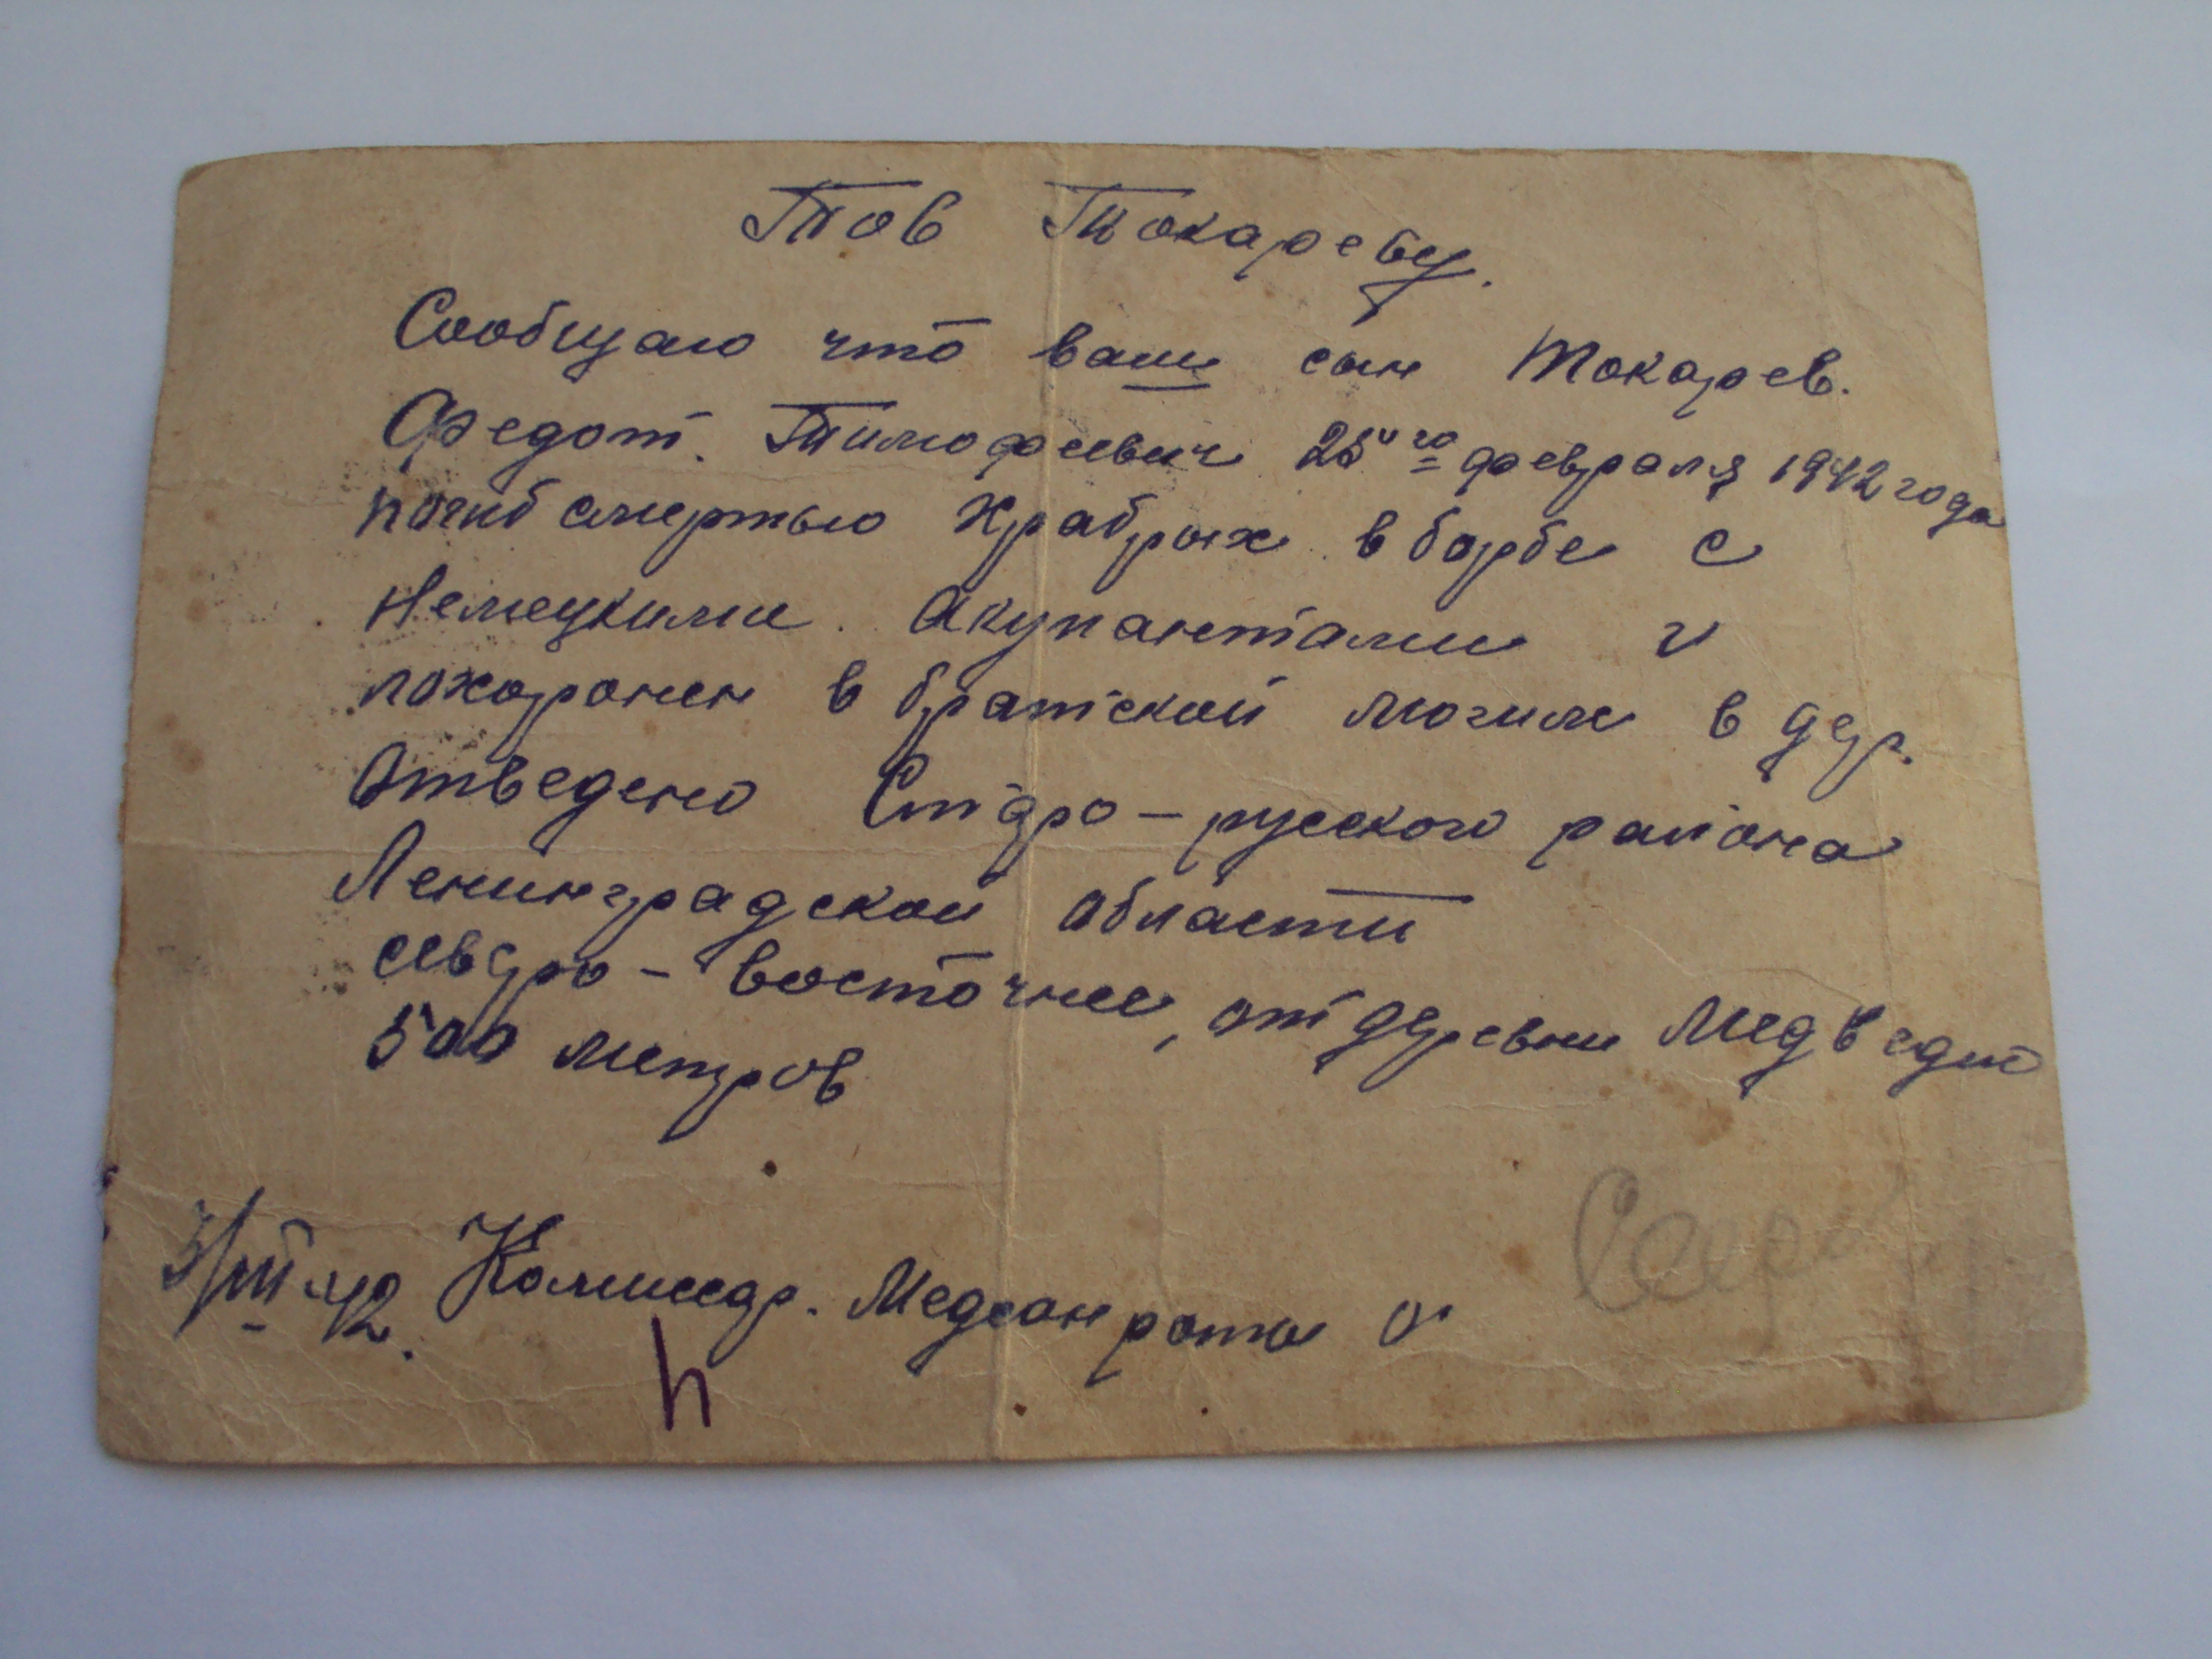 Тов Токареву.
Сообщаю что ваш сын Токарев.
Федот. Тимофеевич 25го февраля 1942 года
погиб смертью храбрых в борбе с
немецкими акупантами и
похоронен в братской могиле в дер.
Отведено Старо-русского района
Ленинградской области
северо-восточнее, от деревни Медведно
500 метров
3/III-42. Комиссар. Медсан роты